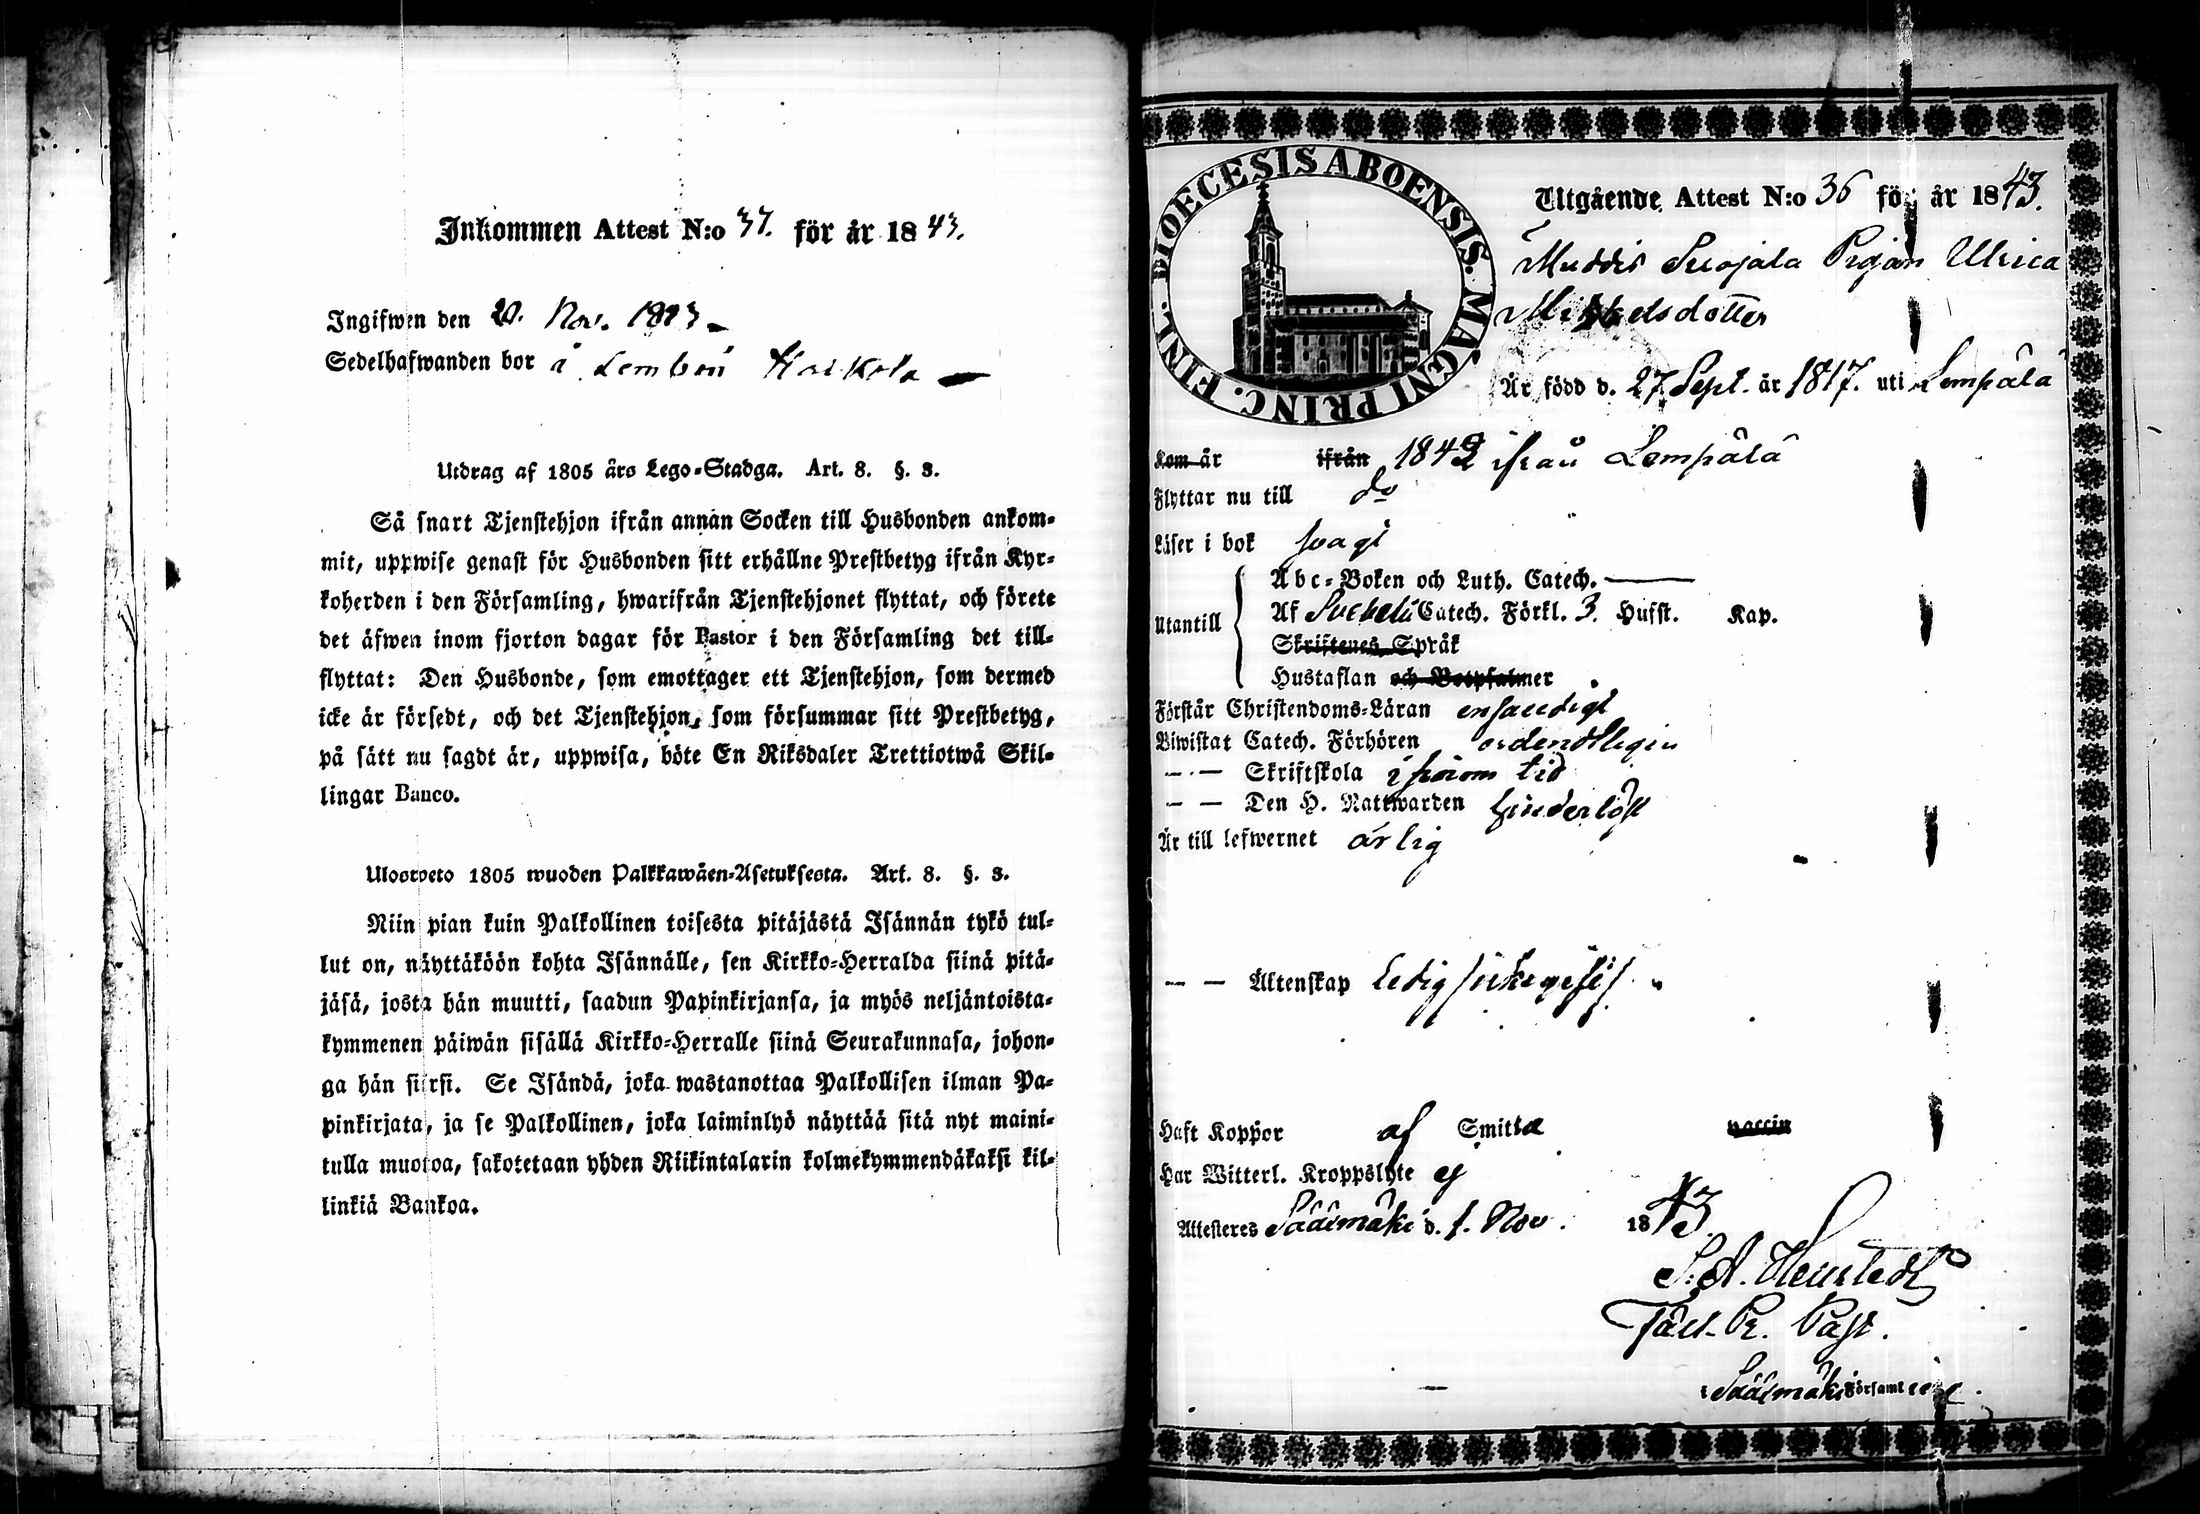 Inkommen Attest N:o 37. för år 1843.
Ingifwen den 20. Nov. 1843
Sedelhafwanden bor i Lembou Haikola
Utdrag af 1805 års Lego-Stadga. Art. 8. §. 3.
Så snart Tjenstehjon ifrån annan Socken till Husbonden ankom-
mit, uppwise genast för Husbonden sitt erhållne Prestbetyg ifrån Kyr-
koherden i den Församling, hwarifrån Tjenstehjonet flyttat, och förete
det äfwen inom fjorton dagar för Pastor i den Församling det till-
flyttat: Den Husbonde, som emottager ett Tjenstehjon, som dermed
icke är försedt, och det Tjenstehjon, som försummar sitt Prestbetyg,
på sätt nu sagdt är, uppwisa, böte En Riksdaler Trettiotwå Skil-
lingar Banco.
Ulosweto 1805 wuoden Palkkawäen-Asetuksesta. Art. 8. §. 3.
Niin pian kuin Palkollinen toisesta pitäjästä Isännän tykö tul-
lut on, näyttäköön kohta Isännälle, sen Kirkko-Herralda siinä pitä-
jäsä, josta hän muutti, saadun Papinkirjansa, ja myös neljäntoista-
kymmenen päiwän sisällä Kirkko-Herralle siinä Seurakunnasa, johon-
ga hän siirsi. Se Isändä, joka wastanottaa Palkollisen ilman Pa-
pinkirjata, ja se Palkollinen, joka laiminlyö näyttää sitä nyt maini-
tulla muotoa, sakotetaan yhden Riikintalarin kolmekymmendäkaksi kil-
linkiä Bankoa.
FINL. DIOECESIS ABOENSIS. MAGNI PRINC.
Utgående Attest N:o 36 för år 1843.
Muddis Suojala Pigan Ulrica
Mickelsdotter
Är född d. 27 Sept. år 1817. uti Lempälä
Kom år ifrån 1842 ifrån Lempälä
Flyttar nu till do
Läser i bok svagt
Utantill
Abc-Boken och Luth. Catech.
Af Svebelii Catech. Förkl. 3. Hufst. Kap.
Skriftenes Språk
Hustaflan och Botpsalmer
Förstår Christendoms-Läran enfaldigt
Biwistat Catech. Förhören ordentligen
— — Skriftskola i sinom tid
— — Den H. Nattwarden hinderlöst
Är till lefwernet ärlig
— — Äktenskap Ledig
Haft Koppor af Smitta vaccin
Har Witterl. Kroppslyte ej
Attesteres Sääsmäki d. 1. Nov. 1843.
S. A. Hellstedt
Past.
i Sääsmäki Församl